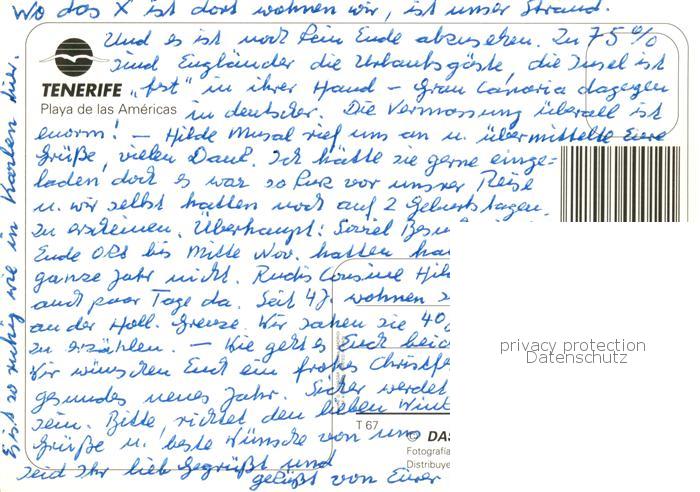 Wo das X ist dort wohnen wir, ist unser Strand.
Und es ist noch kein Ende abzusehen. Zu 75 %
sind Engländer die Urlaubsgäste, die Insel ist
TENERIFE "fest" in ihrer Hand – Gran Canaria dagegen
Playa de las Américas in deutscher. Die Vermassung überall ist
enorm! – Hilde Musal rief uns an u. übermittelte Eure
Grüße, vielen Dank. Ich hätte sie gerne einge=
laden, doch es war so kurz vor unsrer Reise
u. wir selbst hatten noch auf 2 Geburtstagen
zu erscheinen. Überhaupt: Soviel Besu
Ende Okt bis Mitte Nov. hatten
ganze Jahr nicht. Rudis Cousine Hild
auch paar Tage da. Seit 47 wohnen
an der Holl. Grenze. Wir sahen sie 40
zu erzählen. – Wie geht es Euch beid
Wir wünschen Euch ein frohes Christfe
gesundes neues Jahr. Sicher werdet
sein. Bitte, richtet den lieben
Grüße u. beste Wünsche von uns
Seid Ihr lieb Gegrüßt und
geküßt von Eurer
Es ist so ruhig wie in Karlen hier.
T 67
© DAS
Fotografía
Distribuye
privacy protection
Datenschutz